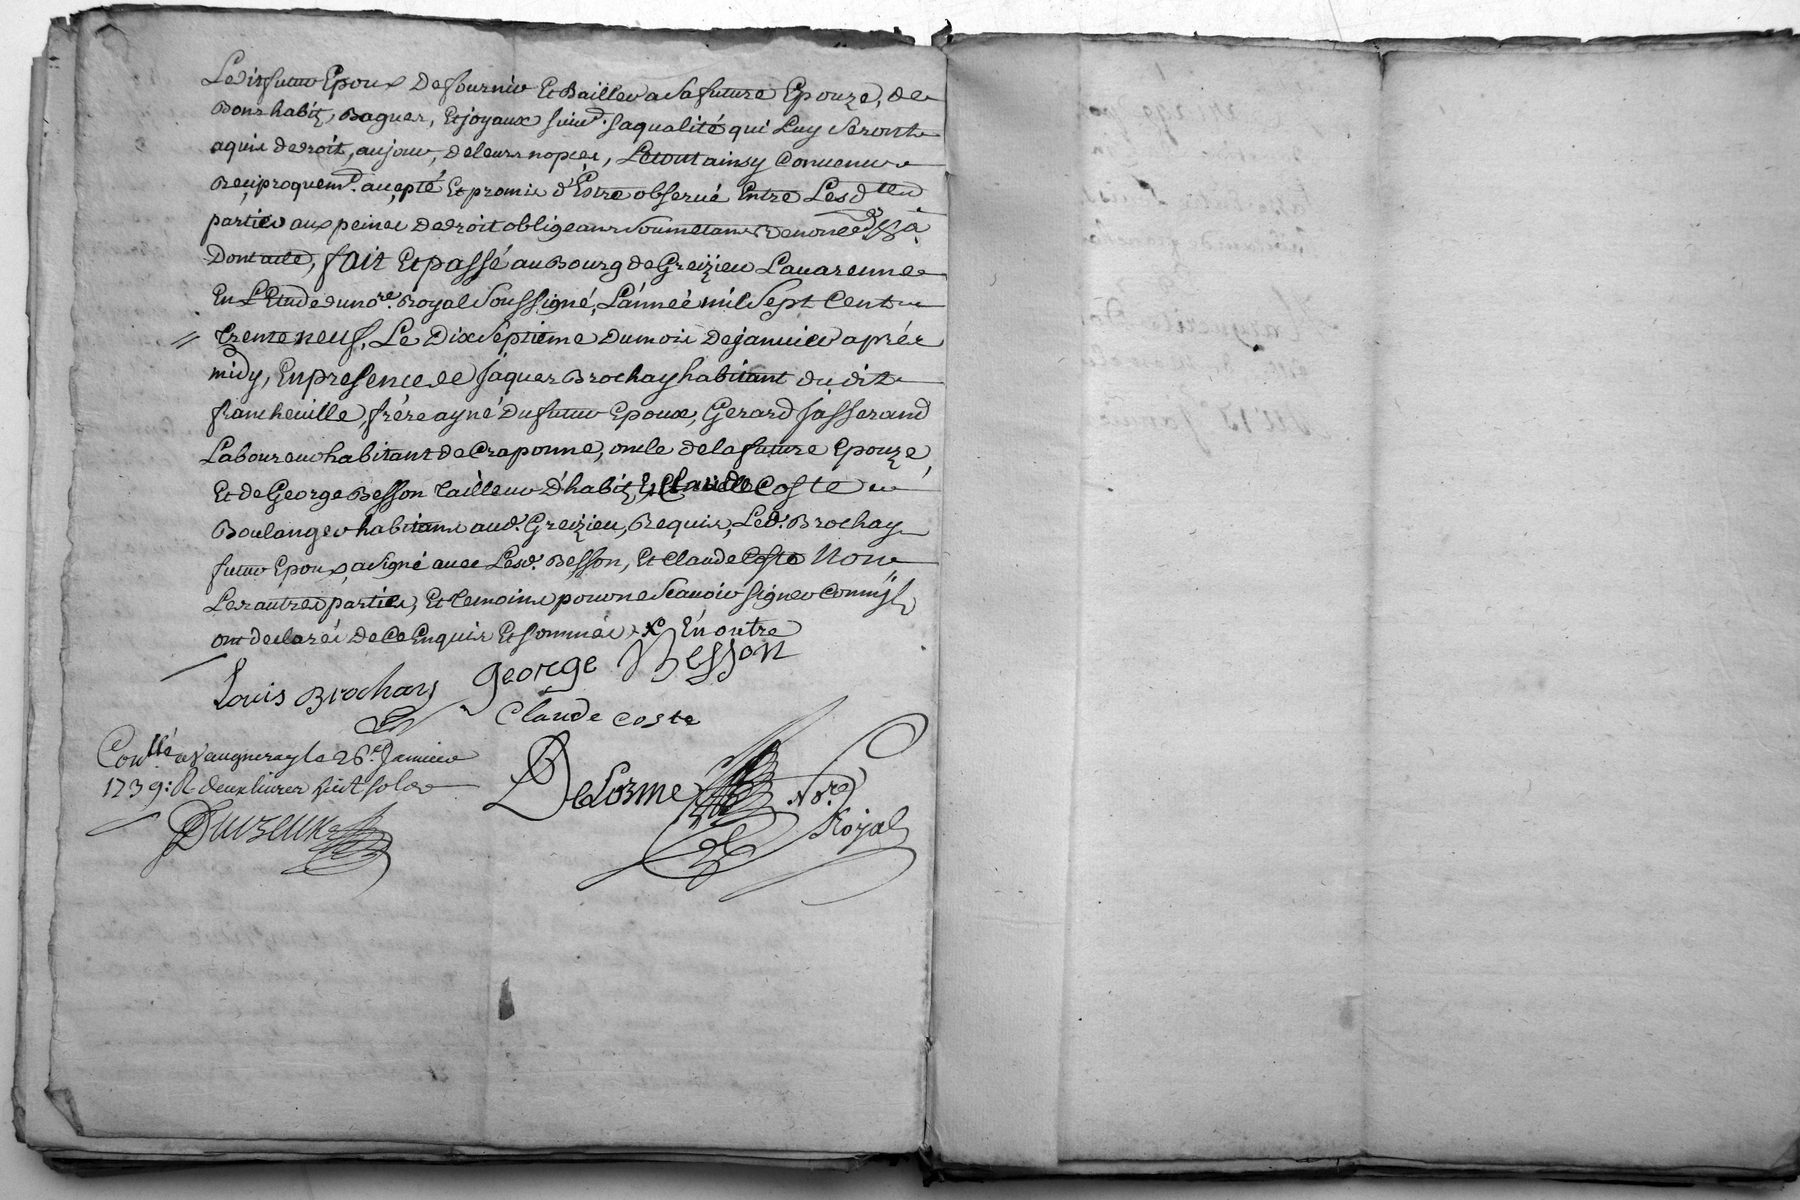 Ledit futur Epoux De fournir Et Bailler a Sa future Epouze, de
Bons habitz, Bagues, Et joyaux suiv.t sa qualité qui Luy Seront
aquis de droit, au jour, de leurs nopces, Le tout ainsy Convenu
Reciproquem.t accepté Et promis d'Estre observé Entre Lesd
parties aux peines De droit obligeans Soumetans Renonc
Dont acte, fait Et passé au Bourg de Greizieu Lavarenne
En L'Etude du no.re Royal Soussigné, L'année mil Sept Cent
trente neuf, Le Dix Septieme Du mois De janvier après
midy, En presence de Jaques Brochay habitant du dit
francheville, frére ayné Du futur Epoux, Gerard Jasserand
Laboureur habitant de Craponne, oncle de la future Epouze,
Et de George Besson tailleur D'habitz, Et Claude Coste
Boulanger habitans aud. Greizieu, Requis, Led. Brochay
futur Epoux, a signé avec Lesd. Besson, Et Claude Coste Non
Les autres parties, Et temoins pour ne Scavoir Signer Comm'jls
ont declarés De Ce Enquis Et sommés x En outre
Louis Brochay george Besson
Claude coste
Con.llé a Vaugneray le 26.e Janvier
1739: R. deux livres huit sols
DeLorme No.re
Royal